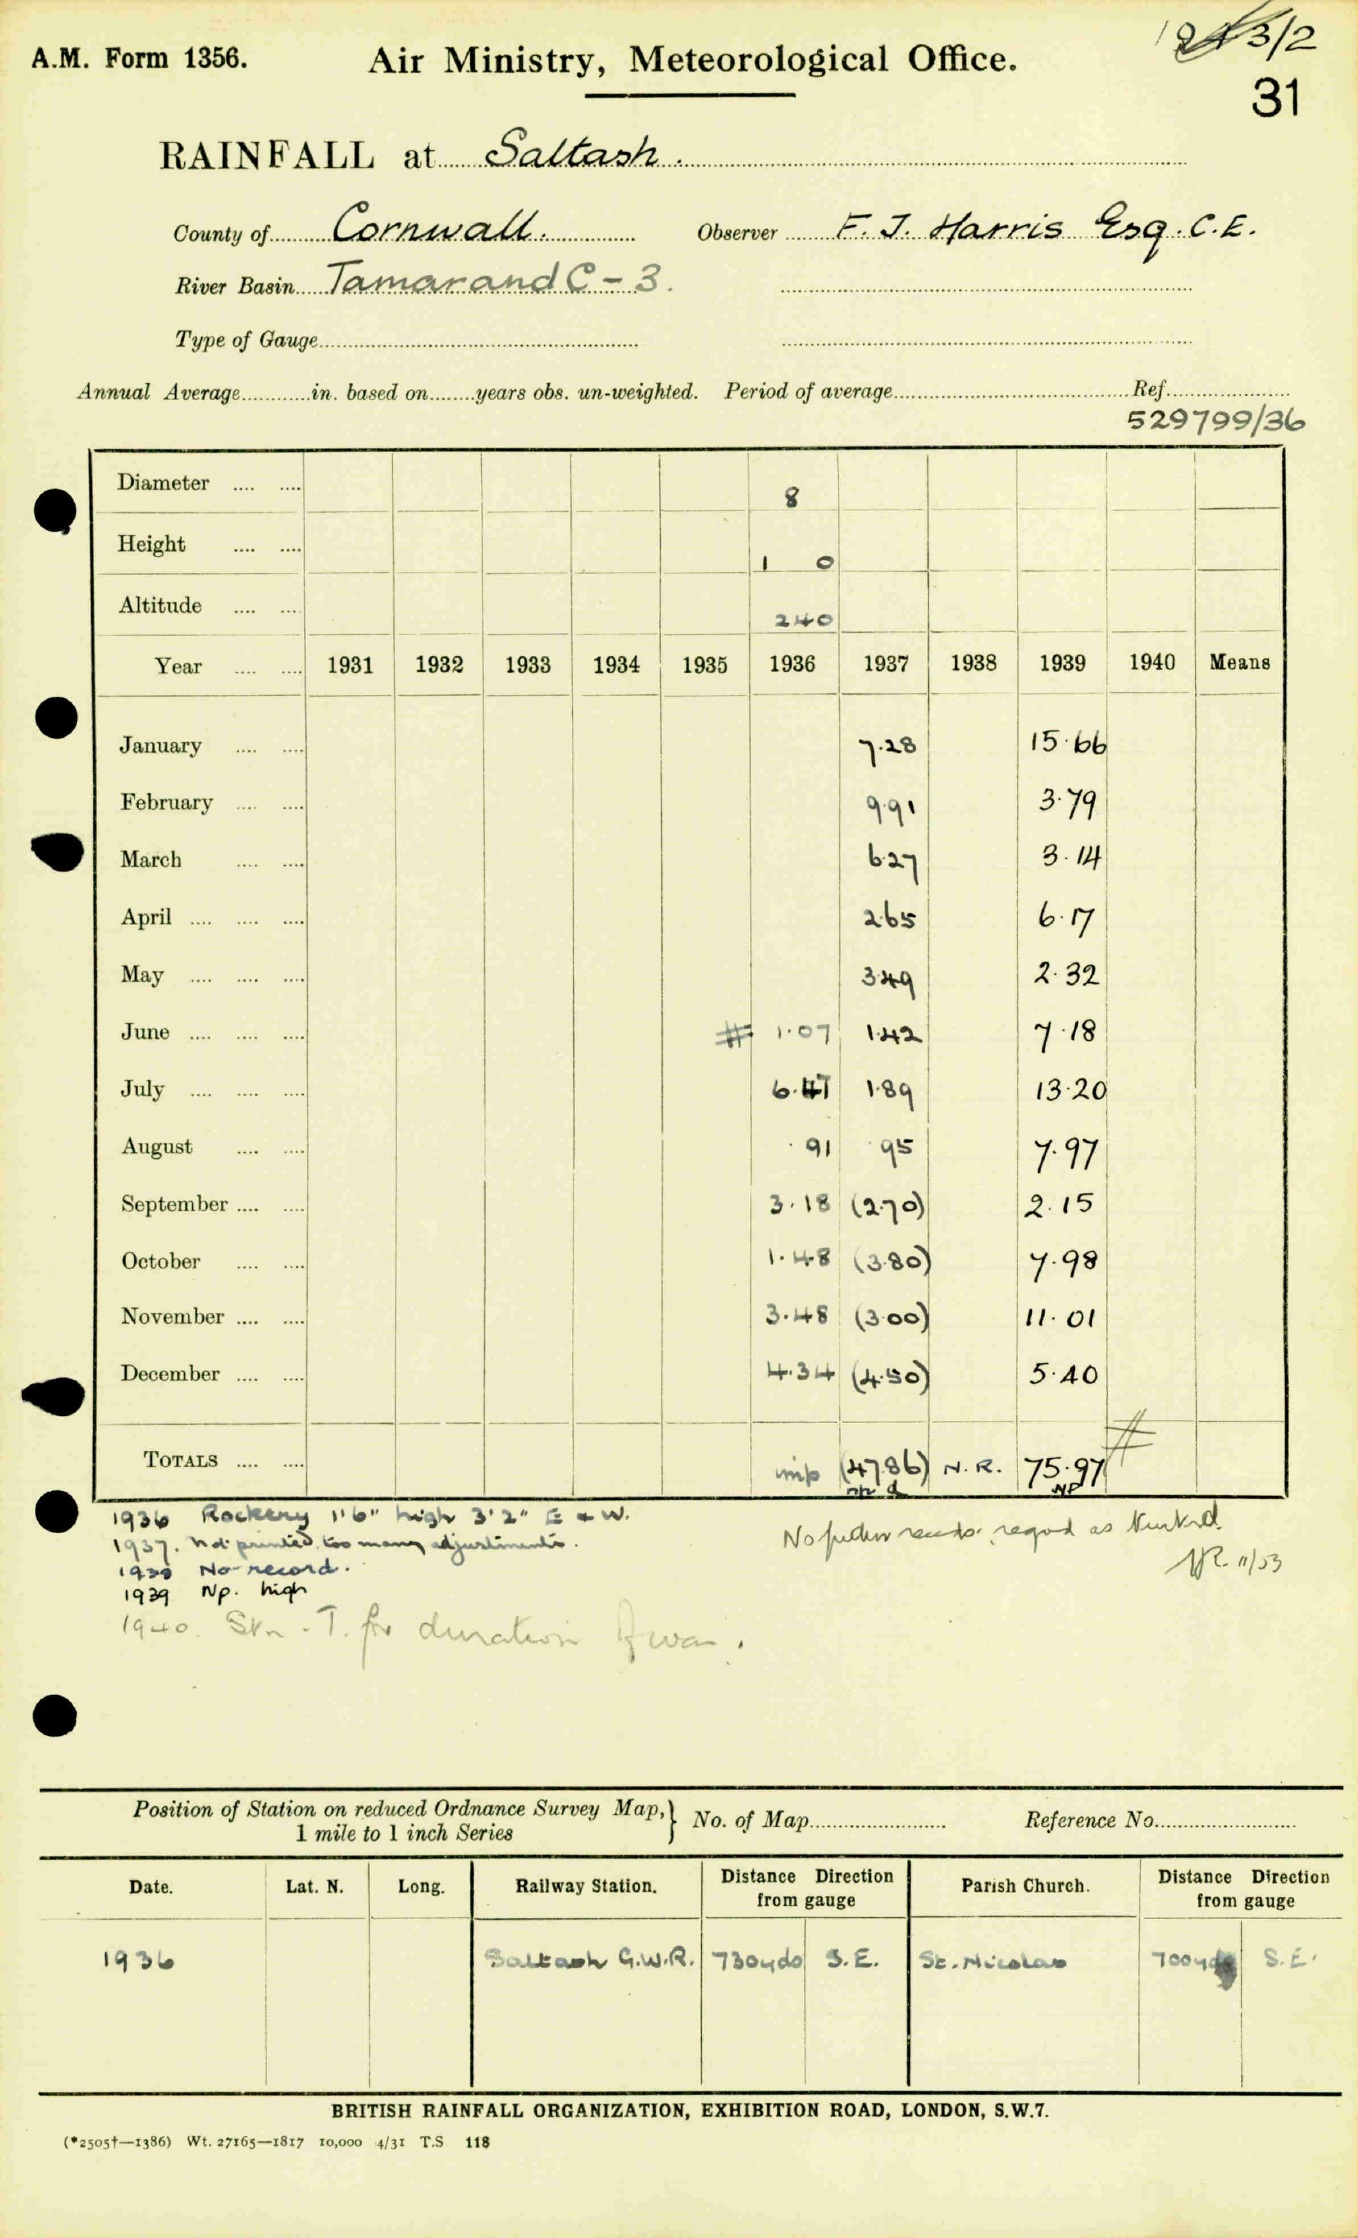 A.M. Form 1356.
Air Ministry, Meteorological Office.
3/2
31
RAINFALL at Saltash.
County of Cornwall. Observer F. J. Harris Esq. C.E.
River Basin Tamar and C-3.
Type of Gauge
Annual Average in. based on years obs. un-weighted. Period of average Ref.
529799/36
Diameter 8
Height 1 0
Altitude 240
Year 1931 1932 1933 1934 1935 1936 1937 1938 1939 1940 Means
January 7.28 15.66
February 9.91 3.79
March 6.27 3.14
April 2.65 6.17
May 3.49 2.32
June # 1.07 1.42 7.18
July 6.47 1.89 13.20
August .91 .95 7.97
September 3.18 (2.70) 2.15
October 1.48 (3.80) 7.98
November 3.48 (3.00) 11.01
December 4.34 (4.50) 5.40
TOTALS imp (47.86) N.R. 75.97 #
np
1936 Rockery 1'6" high 3'2" E & W.
1937. Not printed, too many adjustments.
1938 No record.
1939 Np. high
1940. Stn. T. for duration of war.
No further records, regard as
11/53
Position of Station on reduced Ordnance Survey Map, 1 mile to 1 inch Series No. of Map Reference No.
Date. Lat. N. Long. Railway Station. Distance Direction from gauge Parish Church. Distance Direction from gauge
1936 Saltash G.W.R. 730yds S.E. St. Nicolas 700yds S.E.
BRITISH RAINFALL ORGANIZATION, EXHIBITION ROAD, LONDON, S.W.7.
(*2505†—1386) Wt. 27165—1817 10,000 4/31 T.S 118